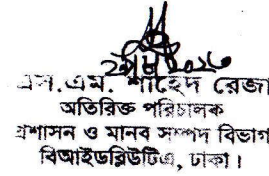 এস.এম. শাহেদ রেজা
অতিরিক্ত পরিচালক
প্রশাসন ও মানব সম্পদ বিভাগ
বিআইডব্লিউটিএ, ঢাকা।